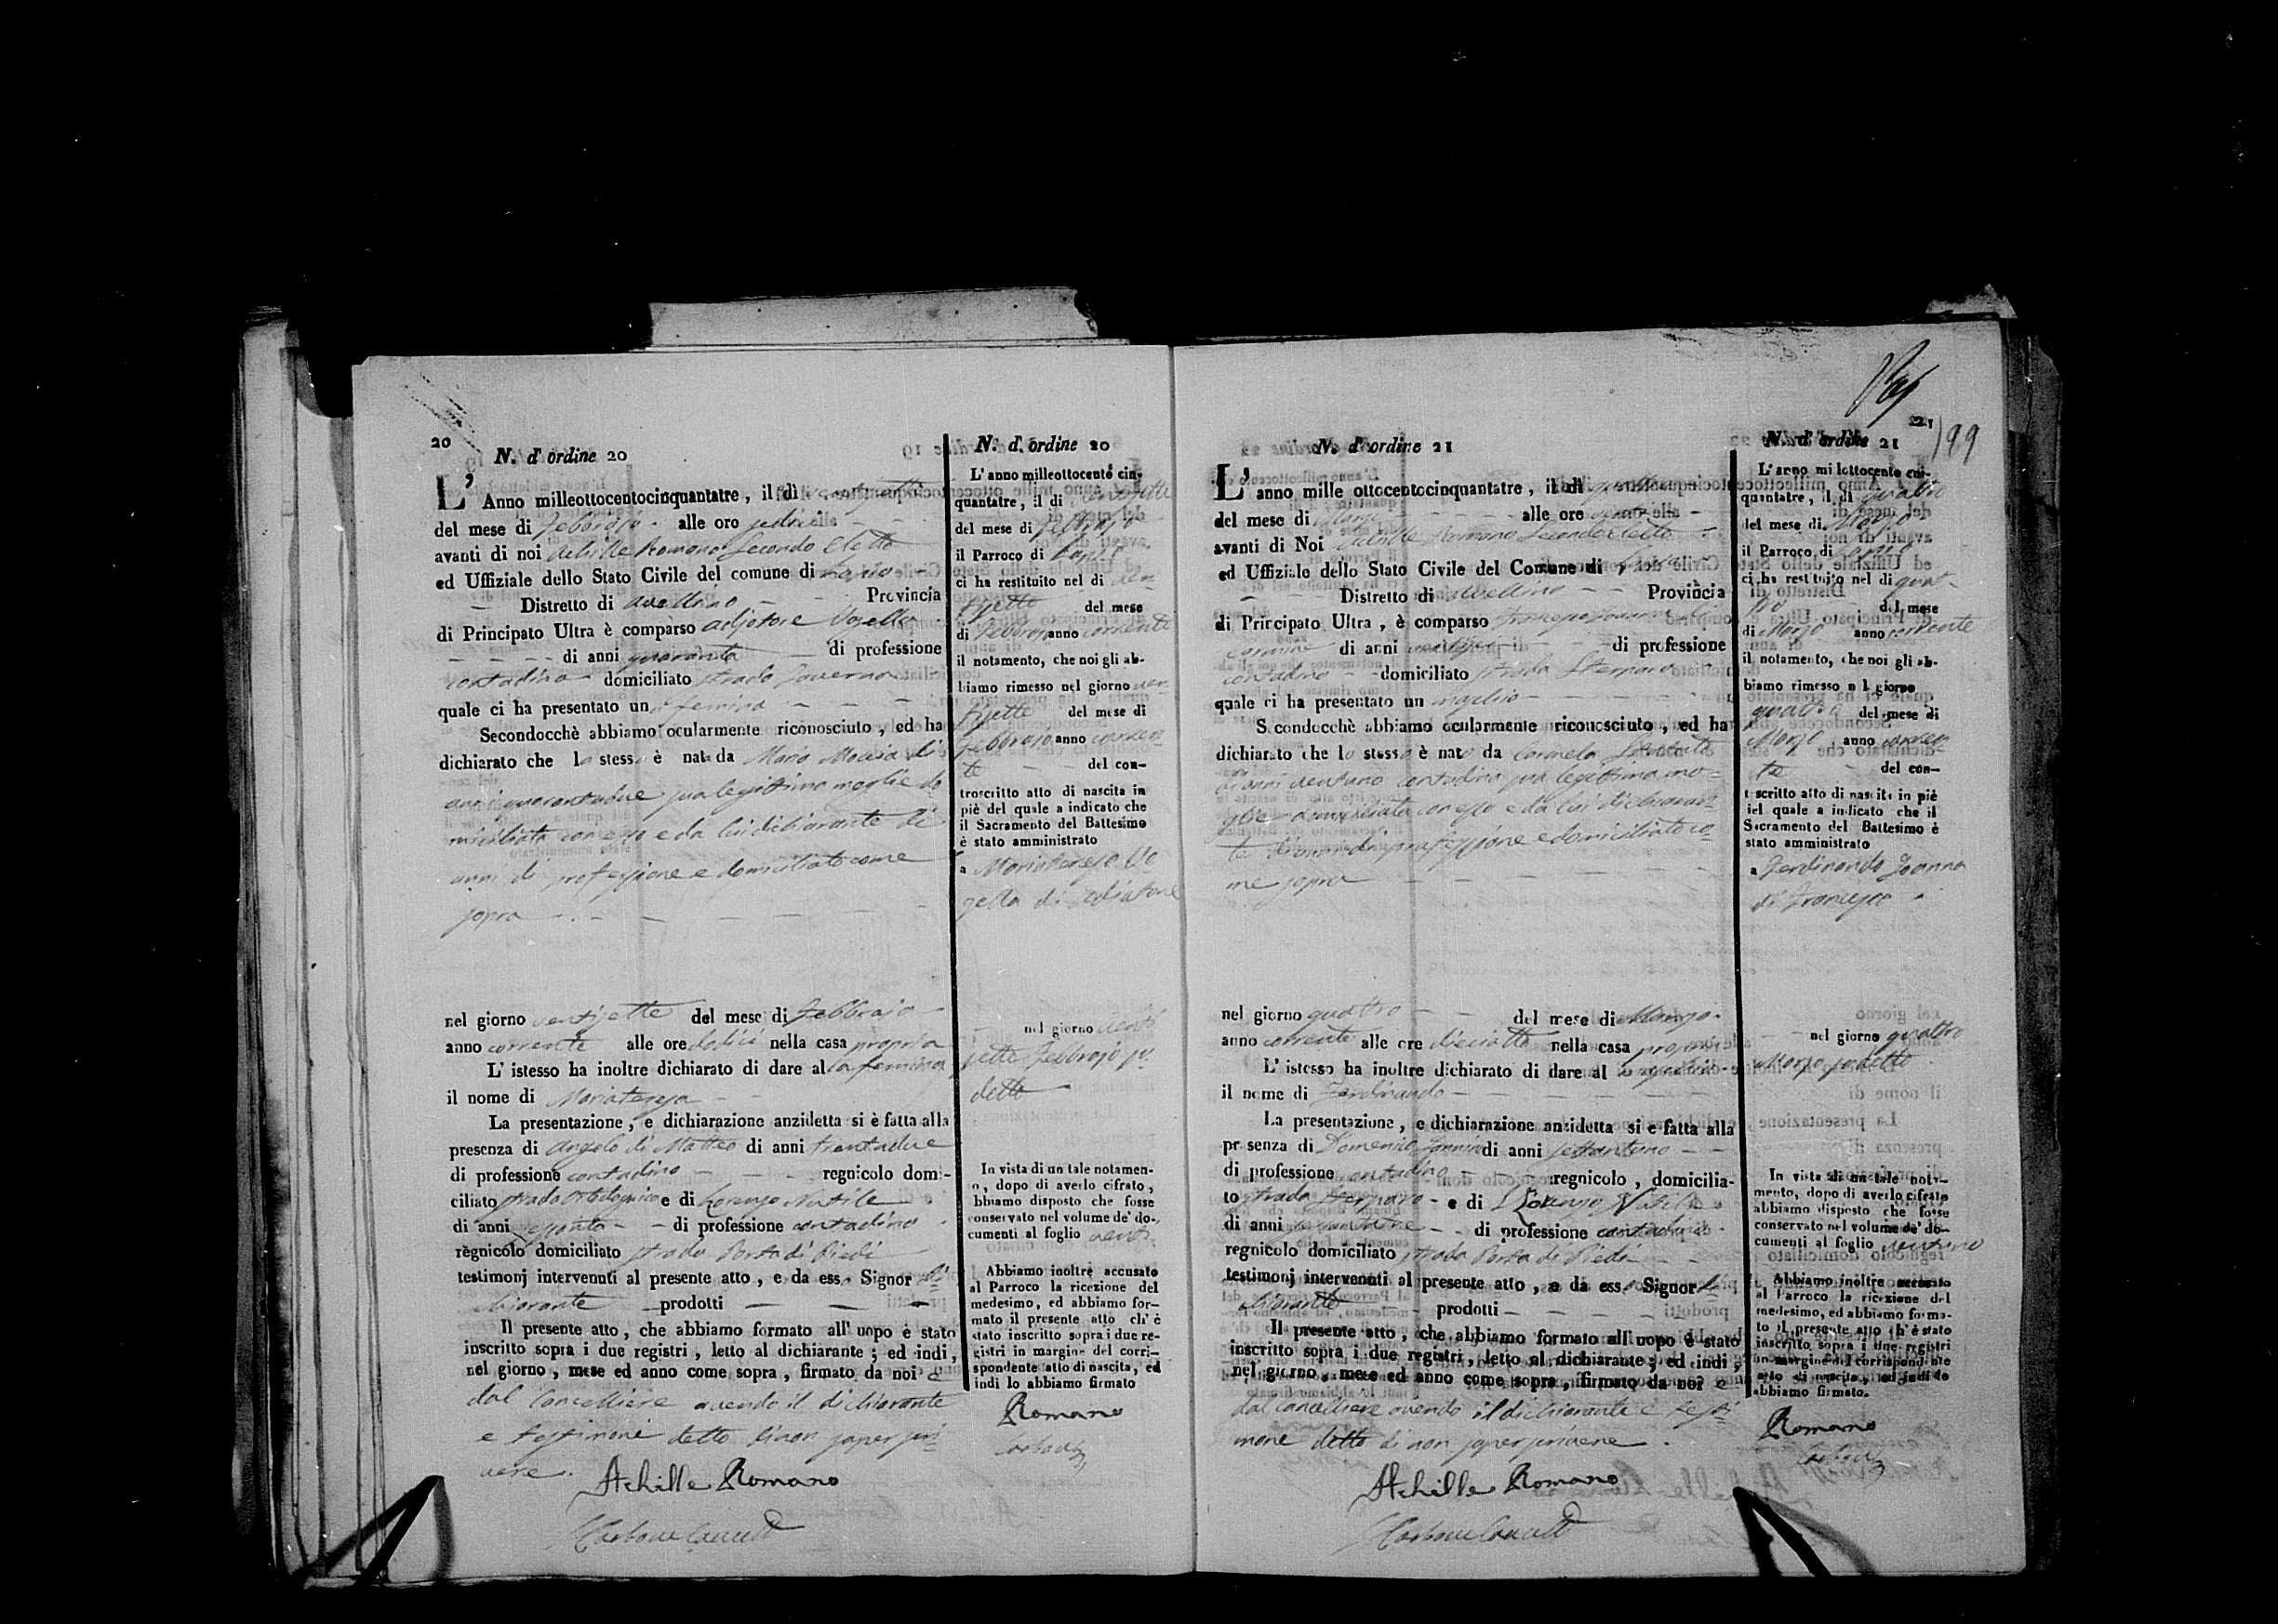 20
N. d' ordine 20
L' Anno milleottocentocinquantatre, il dì ventisette
del mese di Febbrajo alle ore sedici
avanti di noi Achille Romano Secondo Eletto
ed Uffiziale dello Stato Civile del comune di Lapio
Distretto di Avellino Provincia
di Principato Ultra è comparso
di anni quaranta di professione
contadino domiciliato strada
quale ci ha presentato una femina
Secondocchè abbiamo ocularmente riconosciuto, ed ha
dichiarato che la stessa è nata da Maria
anni quarantadue sua legittima moglie do
miciliata con esso e da lui dichiarante di
anni di professione e domiciliato come
sopra
nel giorno ventisette del mese di Febbrajo
anno corrente alle ore dodici nella casa propria
L' istesso ha inoltre dichiarato di dare alla femina
il nome di Mariateresa
La presentazione, e dichiarazione anzidetta si è fatta alla
presenza di Angelo di Matteo di anni trentadue
di professione contadino regnicolo domi-
ciliato strada e di Lorenzo Natile
di anni sessanta di professione contadino
regnicolo domiciliato strada Porta di Piedi
testimonj intervenuti al presente atto, e da esso Signor di
chiarante prodotti
Il presente atto, che abbiamo formato all' uopo è stato
inscritto sopra i due registri, letto al dichiarante; ed indi,
nel giorno, mese ed anno come sopra, firmato da noi e
dal Cancelliere avendo il dichiarante
e testimoni detto di non saper scri
vere.
Achille Romano
N. d' ordine 20
L' anno milleottocento cin-
quantatre, il di ventisette
del mese di Febbrajo
il Parroco di Lapio
ci ha restituito nel di ven
tisette del mese
di Febbrajo anno corrente
il notamento, che noi gli ab-
biamo rimesso nel giorno ven
tisette del mese di
Febbrajo anno corren
te del con-
troscritto atto di nascita in
piè del quale a indicato che
il Sacramento del Battesimo
è stato amministrato
a Mariateresa
di
nel giorno venti
sette Febbrajo su
detto
In vista di un tale notamen-
o, dopo di averlo cifrato,
bbiamo disposto che fosse
conservato nel volume de' do-
cumenti al foglio venti
Abbiamo inoltre accusato
al Parroco la ricezione del
medesimo, ed abbiamo for-
mato il presente atto ch' è
stato inscritto sopra i due re-
gistri in margine del corri-
spondente atto di nascita, ed
indi lo abbiamo firmato
Romano
21
199
N. d' ordine 21
L' anno mille ottocentocinquantatre, il dì quattro
del mese di Marzo alle ore
avanti di Noi Achille Romano Secondo Eletto
ed Uffiziale dello Stato Civile del Comune di Lapio
Distretto di Avellino Provincia
di Principato Ultra, è comparso Francesco
Carmine di anni di professione
contadino domiciliato strada
quale ci ha presentato un maschio
Secondocchè abbiamo ocularmente riconosciuto, ed ha
dichiarato che lo stesso è nato da Carmela
di anni ventuno contadina sua legittima mo-
glie domiciliata con esso e da lui dichiaran-
te di professione e domiciliato co-
me sopra
nel giorno quattro del mese di Marzo
anno corrente alle ore dieciotto nella casa propria
L' istesso ha inoltre dichiarato di dare al maschio
il nome di Ferdinando
La presentazione, e dichiarazione anzidetta si è fatta alla
presenza di Domenico di anni settantuno
di professione contadino regnicolo, domicilia-
to strada e di Lorenzo Natile
di anni di professione contadino
regnicolo domiciliato strada Porta di Piedi
testimonj intervenuti al presente atto, e da esso Signor di
chiarante prodotti
Il presente atto, che abbiamo formato all' uopo è stato
inscritto sopra i due registri, letto al dichiarante; ed indi,
nel giorno, mese ed anno come sopra, firmato da noi e
dal Cancelliere avendo il dichiarante e testi
mone detto di non saper scrivere.
Achille Romano
N. d' ordine 21
L' anno milleottocento cin-
quantatre, il di quattro
del mese di Marzo
il Parroco di Lapio
ci ha restituito nel di quat-
tro del mese
di Marzo anno corrente
il notamento, che noi gli ab-
biamo rimesso nel giorno
quattro del mese di
Marzo anno corren-
te del con-
troscritto atto di nascita in piè
del quale a indicato che il
Sacramento del Battesimo è
stato amministrato
a Ferdinando Joanna
di Francesco
nel giorno quattro
Marzo sudetto
In vista di un tale nota-
mento, dopo di averlo cifrato
abbiamo disposto che fosse
conservato nel volume de' do-
cumenti al foglio ventuno
Abbiamo inoltre accusato
al Parroco la ricezione del
medesimo, ed abbiamo forma-
to il presente atto ch' è stato
inscritto sopra i due registri
in margine del corrispondente
atto di nascita, ed indi lo
abbiamo firmato.
Romano